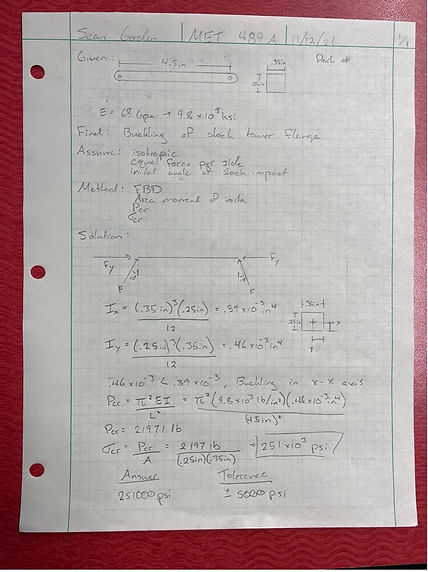 Sean Gordon | MET 489 A | 11/12/21 1/1
Given: Part #
4.5in .35in
.25in
E = 68 Gpa → 9.8 x10³ ksi
Find: Buckling of shock tower flange
Assume: isotropic
equal force per side
initial angle of shock impact
Method: FBD
Area moment of inertia
Pcr
σcr
Solution:
Fy Fy
F F
Ix = (.35in)³(.25in) = .89x10⁻³ in⁴ .35in
12 .25in x
Iy = (.25in)³(.35in) = .46x10⁻³ in⁴ y
12
.46x10⁻³ < .89x10⁻³, Buckling in x-x axis
Pcr = π² EI = π²(9.8x10³ lb/in²)(.46x10⁻³in⁴)
L² (4.5in)²
Pcr = 21971 lb
σcr = Pcr = 2197 lb = 251 x10³ psi
A (.25in)(.35in)
Answer Tolerance
251000psi ± 5000 psi